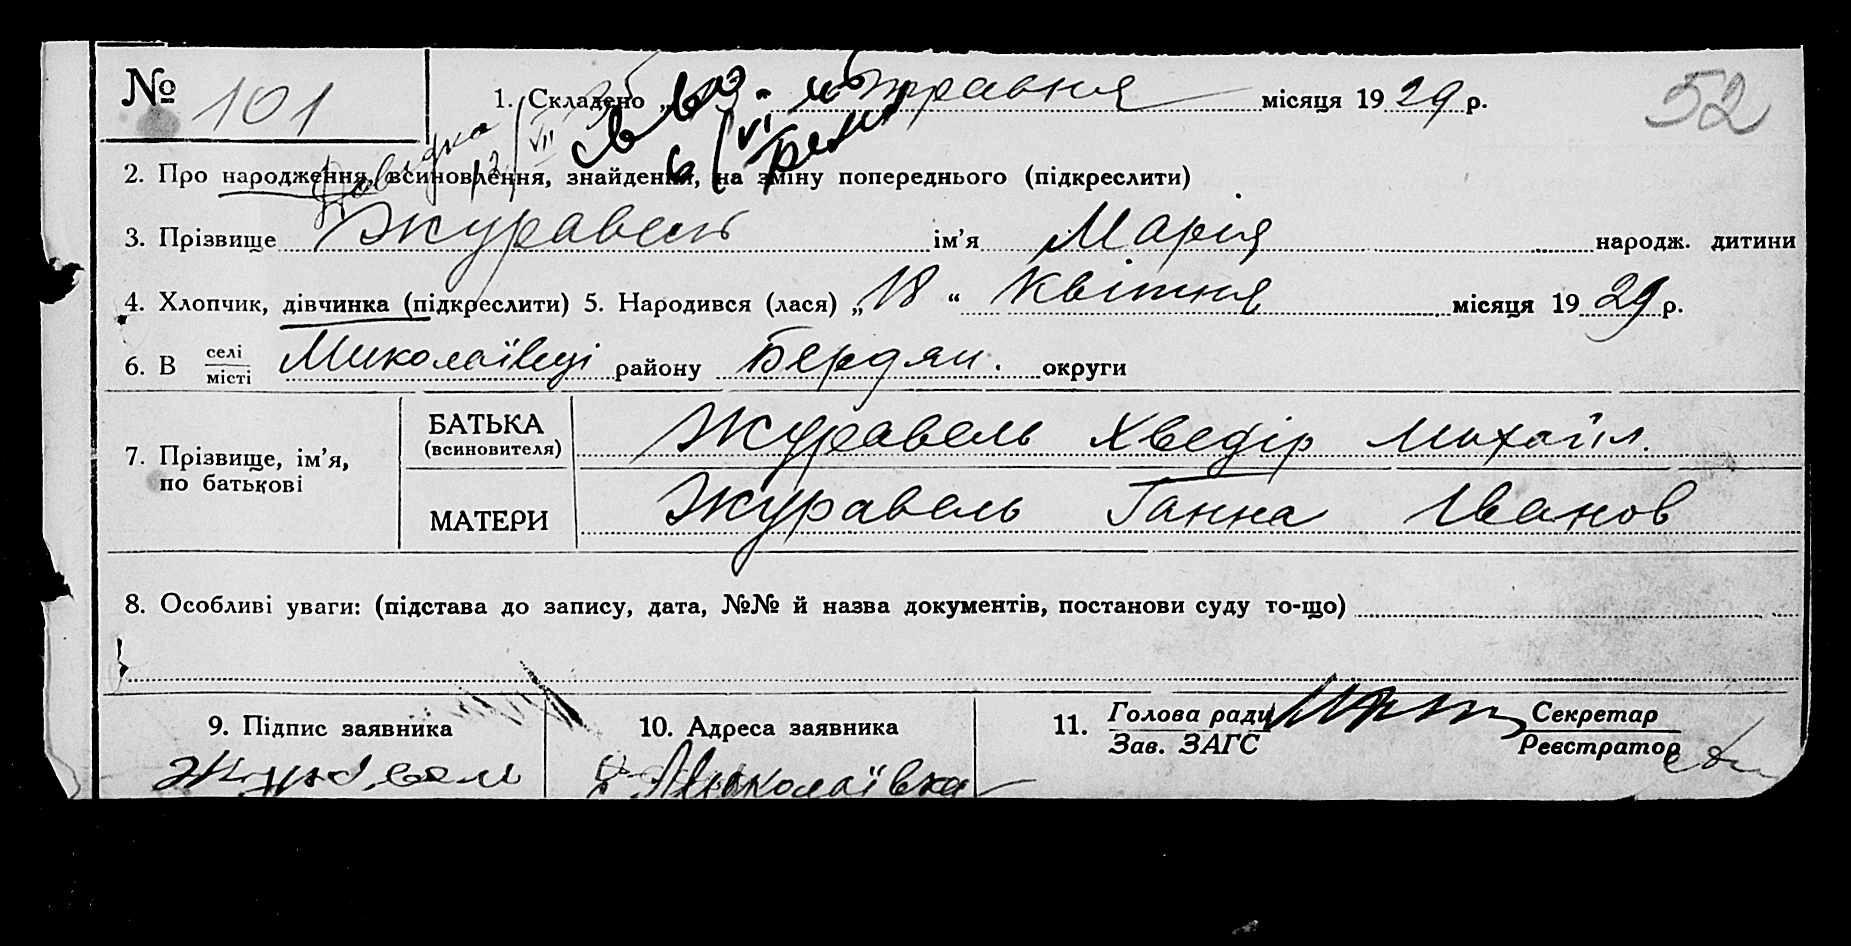 № 101 1. Складено „ травня місяця 1929 р. 52
Довідка
2. Про народження, всиновлення, знайдення, на зміну попереднього (підкреслити)
3. Прізвище Журавель ім’я Марія народж. дитини
4. Хлопчик, дівчинка (підкреслити) 5. Народився (лася) „18“ Квітня місяця 1929 р.
6. В селі / місті Миколаївці району Бердян. округи
7. Прізвище, ім’я, по батькові
БАТЬКА (всиновителя) Журавель Хведір Михаїл.
МАТЕРИ Журавель Ганна Іванов
8. Особливі уваги: (підстава до запису, дата, №№ й назва документів, постанови суду то-що)
9. Підпис заявника 10. Адреса заявника 11. Голова ради / Зав. ЗАГС Секретар / Реєстратор
Журавель Миколаївка